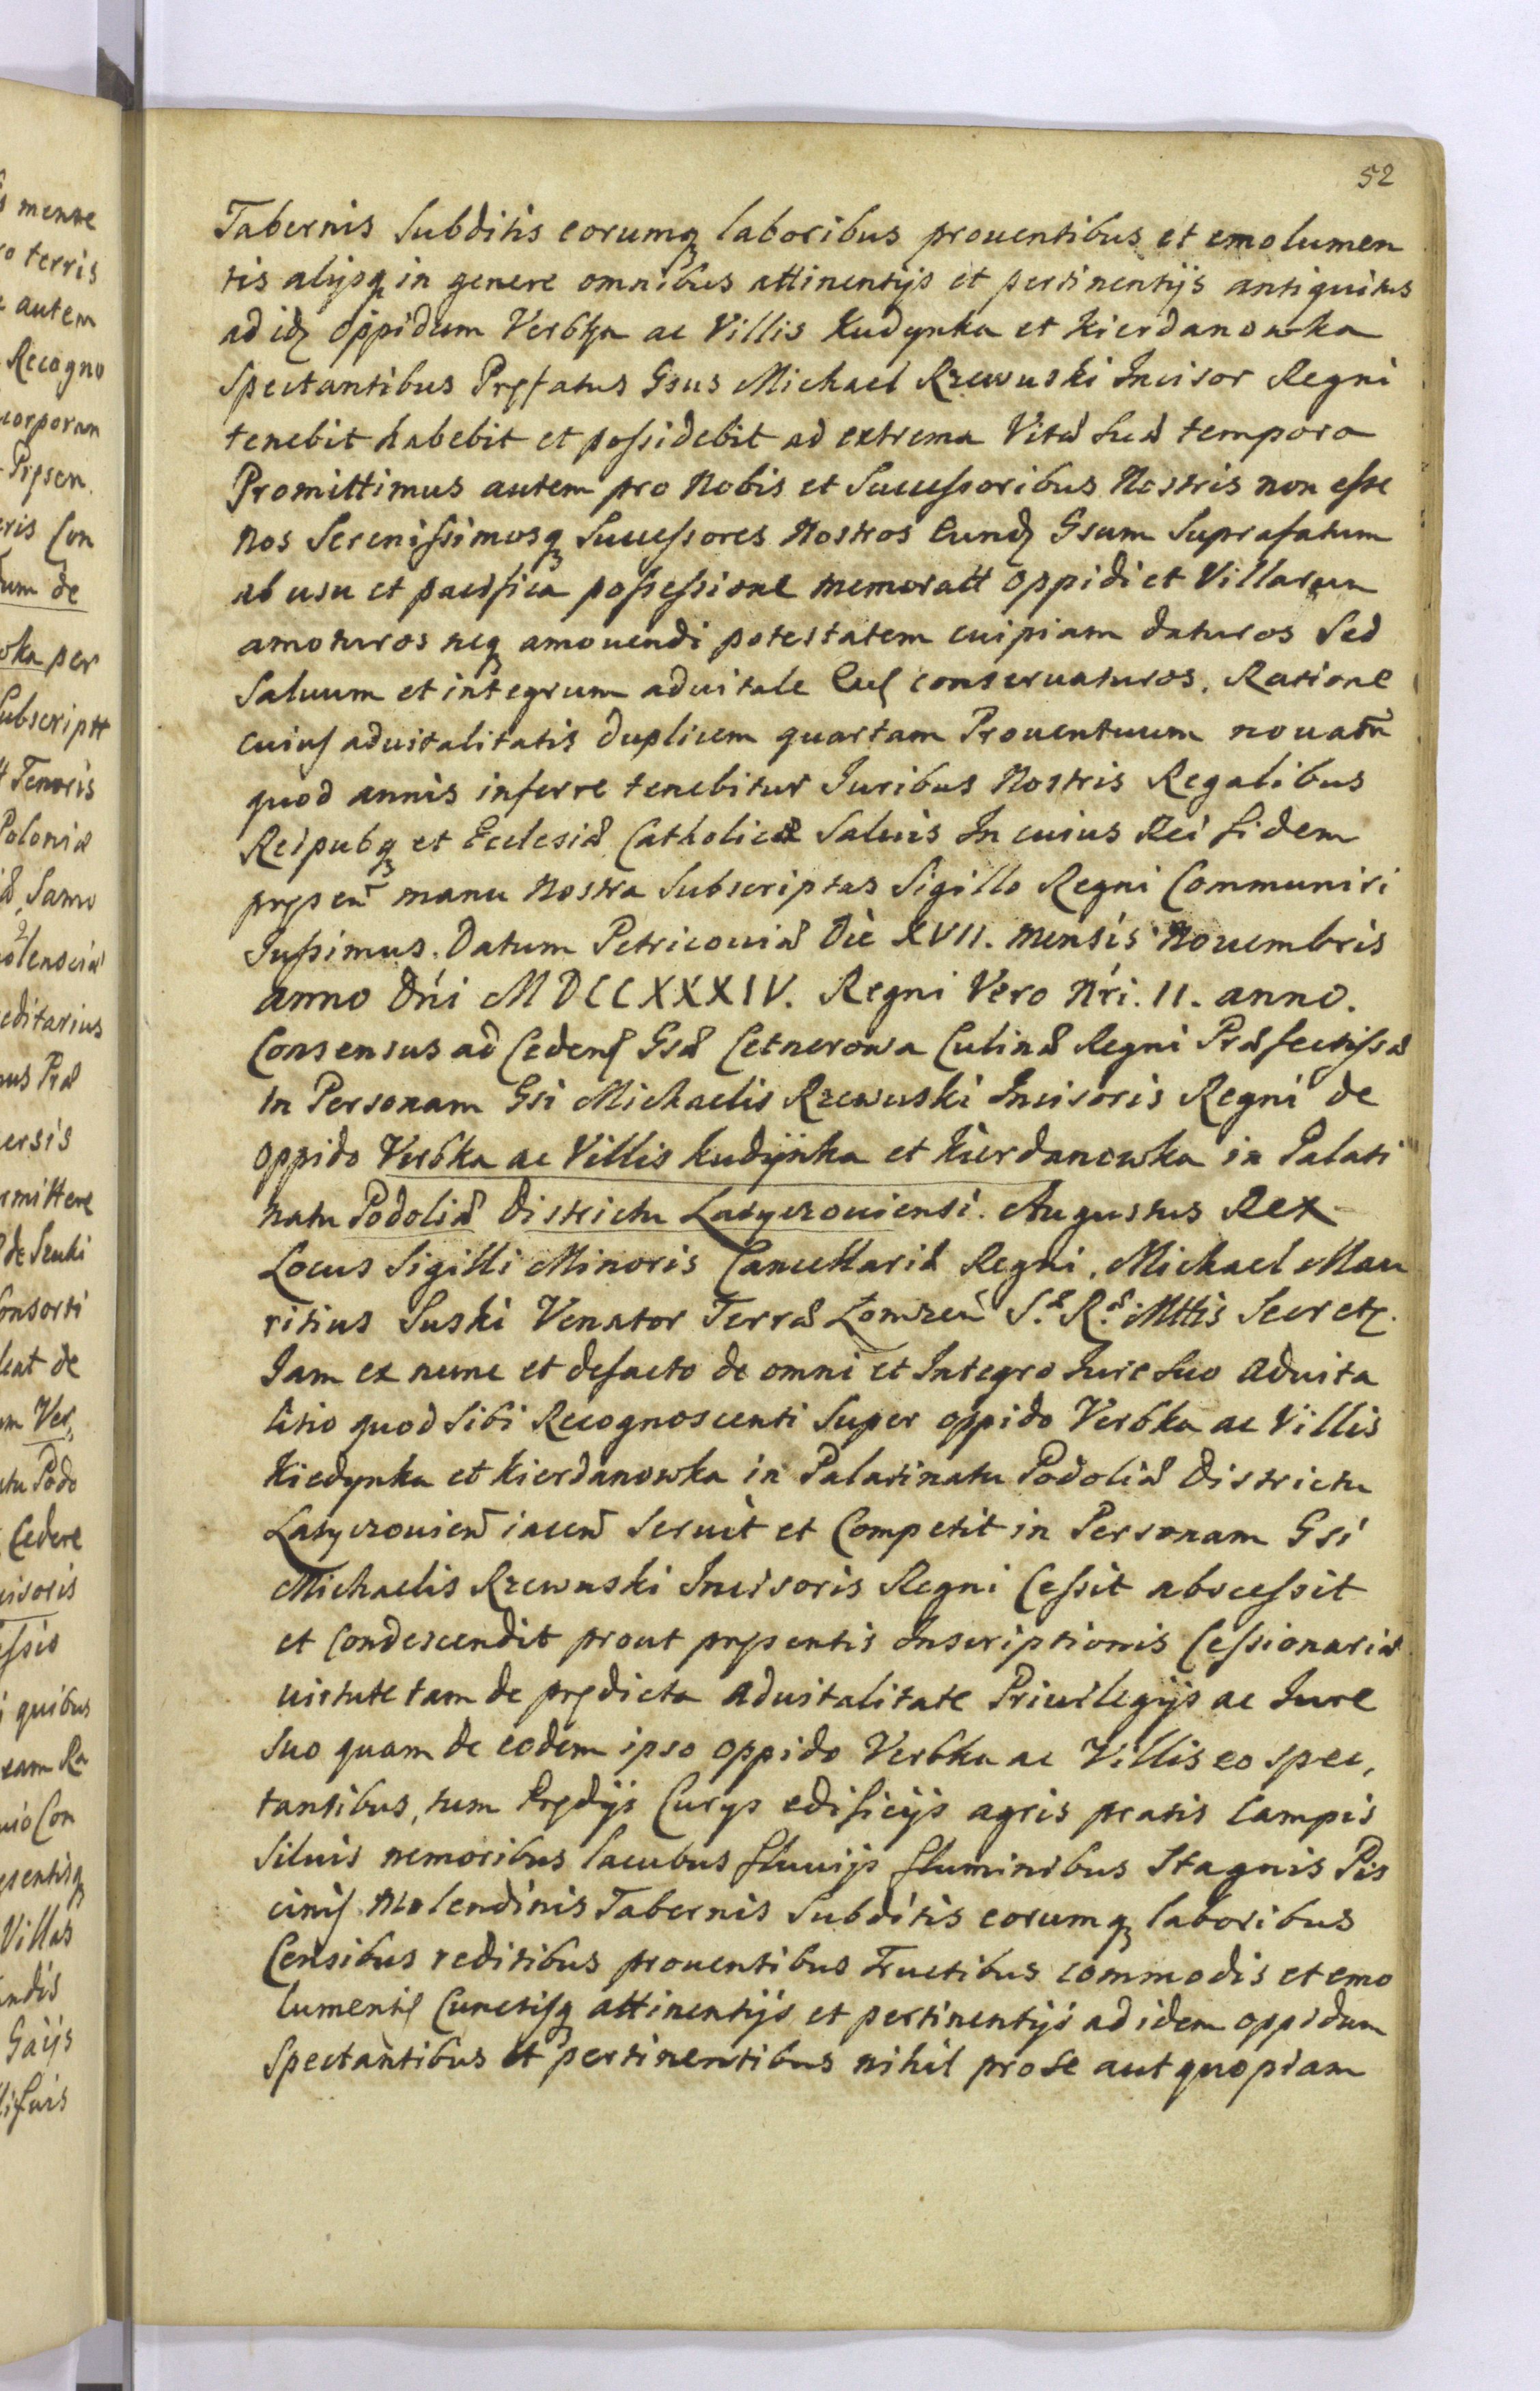 52
Tabernis Subditis eorumq laboribus prouentibus et emolumen
tis alijsq in genere omnibus attinentijs et pertinentijs antiquitus
ad idz Oppidum Verbka ac Villis Kudynka et Kierdanowka
Spectantibus Pręfatus Gsus Michael Rzewuski Incisor Regni
tenebit habebit et possidebit ad extrema Vitæ Suæ tempora
Promittimus autem pro Nobis et Successoribus Nostris non esse
Nos Serenissimosq Successores Nostros Eundz Gsum Suprafatum
ab usu et pacifica possessione memoratt Oppidi et Villarum
amoturos neq amouendi potestatem cuipiam daturos Sed
Saluum et integrum aduitale Eius conseruaturos. Ratione
cuius aduitalitatis duplicem quartam Prouentuum nouatñ
quod annis inferre tenebitur Juribus Nostris Regalibus
Reipubq et Ecclesiæ Catholicæ Saluis In cuius Rei fidem
pręseñ manu Nostra Subscriptas Sigillo Regni Communiri
Jussimus. Datum Petricouiæ Die XVII. Mensis Nouembris
anno Dńi MDCCXXXIV. Regni Vero Nři. II. anno.
Consensus ad Cedenđ Gsæ Cetnerowa Culinæ Regni Præfectissæ
in Personam Gsi Michaelis Rzewuski Incisoris Regni de
Oppido Verbka ac Villis Kudynka et Kierdanowka in Palati
natu Podoliæ Districtu Latyczouiensi. Augustus Rex
Locus Sigilli Minoris Cancellariæ Regni. Michael Mau
ritius Suski Venator Terræ Łomzeñ S.æ R.æ Mttis Secretz.
Jam ex nunc et defacto de omni et Integro Jure Suo aduita
litio quod Sibi Recognoscenti Super Oppido Verbka ac Villis
Kiedynka et Kierdanowka in Palatinatu Podoliæ Districtu
Latyczouieñ iaceñ Seruit et Competit in Personam Gsi
Michaelis Rzewuski Incisoris Regni Cessit abscessit
et Condescendit prout pręsentis Inscriptionis Cessionariæ
uirtute tam de prędicta aduitalitate Priuilegijs ac Jure
Suo quam de eodem ipso Oppido Verbka ac Villis eo spec,
tantibus, tum Prędijs Curys edificijs agris pratis Campis
Siluis nemoribus lacubus fluuijs fluminibus Stagnis Pis
cinis Molendinis Tabernis Subditis eorumq laboribus
Censibus reditibus prouentibus Fructibus commodis et emo
lumentis Cunctisq attinentijs et pertinentijs ad idem Oppidum
Spectantibus et pertinentibus nihil pro Se aut quopiam